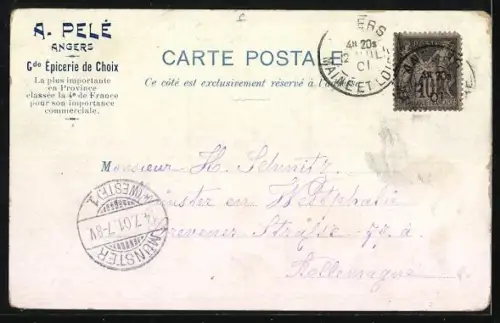 A. PELÉ
ANGERS
Gde Épicerie de Choix
La plus importante
en Province
classée la 4e de France
pour son importance
commerciale.
CARTE POSTALE
Ce côté est exclusivement réservé à l'a
ERS
4E 20S
12 JUIL
01
MAINE ET LOI
10
Monsieur H. Schmitz
Münster en Westphalie
Grevener Straße 77. a.
Allemagne
MÜNSTER
(WESTF.) 1.
4.7.01.7-8V